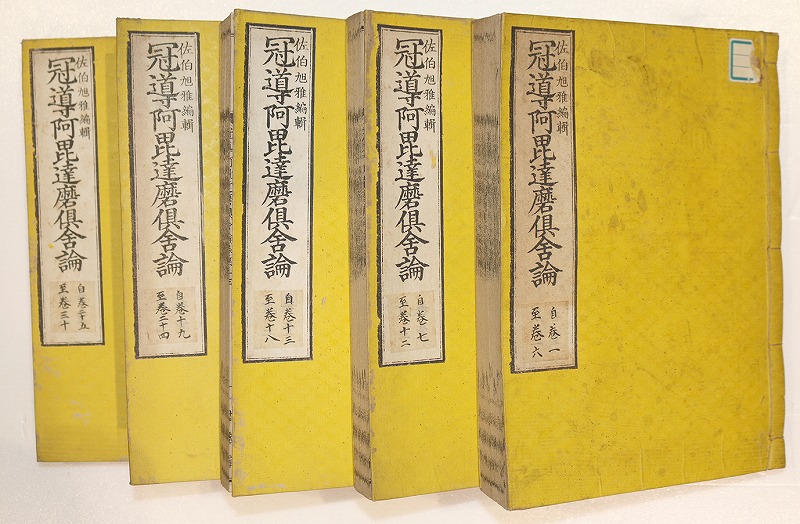 佐伯旭雅編輯
冠導阿毘達磨倶舍論
自卷一
至卷六
佐伯旭雅編輯
冠導阿毘達磨倶舍論
自卷七
至卷十二
佐伯旭雅編輯
冠導阿毘達磨倶舍論
自卷十三
至卷十八
佐伯旭雅編輯
冠導阿毘達磨倶舍論
自卷十九
至卷二十四
佐伯旭雅編輯
冠導阿毘達磨倶舍論
自卷二十五
至卷三十